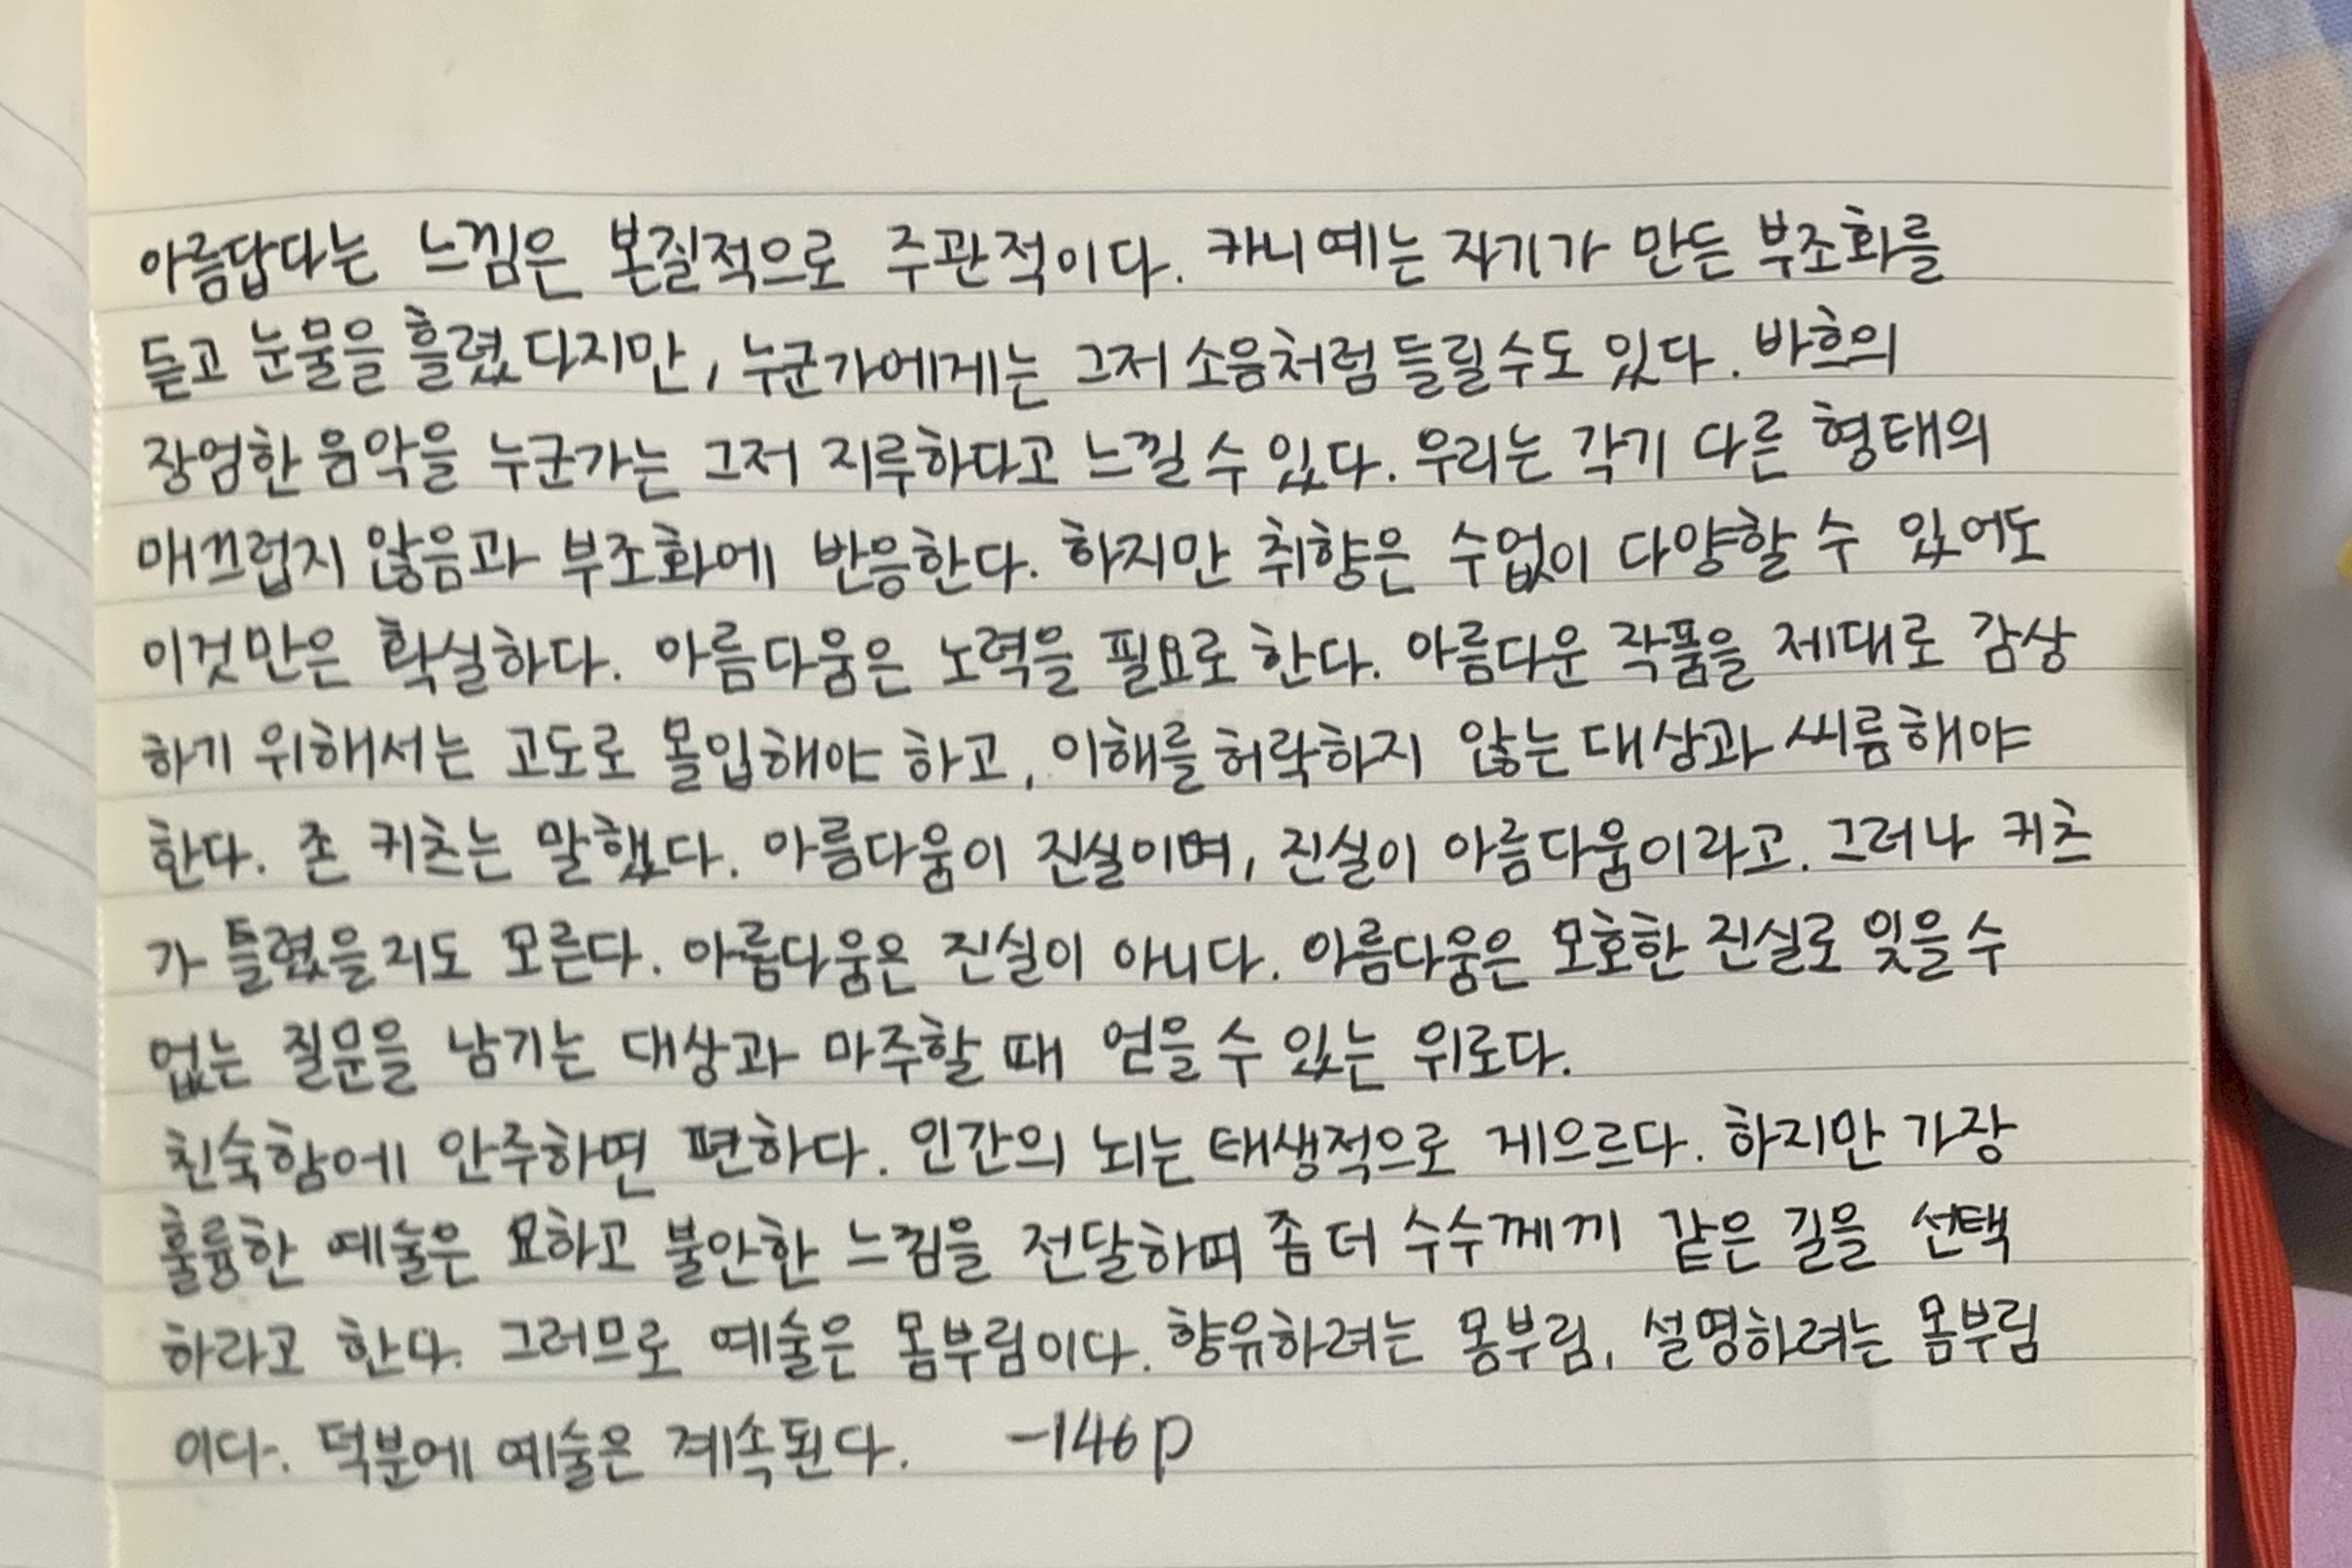 아름답다는 느낌은 본질적으로 주관적이다. 카니예는 자기가 만든 부조화를
듣고 눈물을 흘렸다지만, 누군가에게는 그저 소음처럼 들릴수도 있다. 바흐의
장엄한 음악을 누군가는 그저 지루하다고 느낄 수 있다. 우리는 각기 다른 형태의
매끄럽지 않음과 부조화에 반응한다. 하지만 취향은 수없이 다양할 수 있어도
이것만은 확실하다. 아름다움은 노력을 필요로 한다. 아름다운 작품을 제대로 감상
하기 위해서는 고도로 몰입해야 하고, 이해를 허락하지 않는 대상과 씨름해야
한다. 존 키츠는 말했다. 아름다움이 진실이며, 진실이 아름다움이라고. 그러나 키츠
가 틀렸을지도 모른다. 아름다움은 진실이 아니다. 아름다움은 모호한 진실로 잊을 수
없는 질문을 남기는 대상과 마주할 때 얻을 수 있는 위로다.
친숙함에 안주하면 편하다. 인간의 뇌는 태생적으로 게으르다. 하지만 가장
훌륭한 예술은 묘하고 불안한 느낌을 전달하며 좀 더 수수께끼 같은 길을 선택
하라고 한다. 그러므로 예술은 몸부림이다. 향유하려는 몸부림, 설명하려는 몸부림
이다. 덕분에 예술은 계속된다. -146p